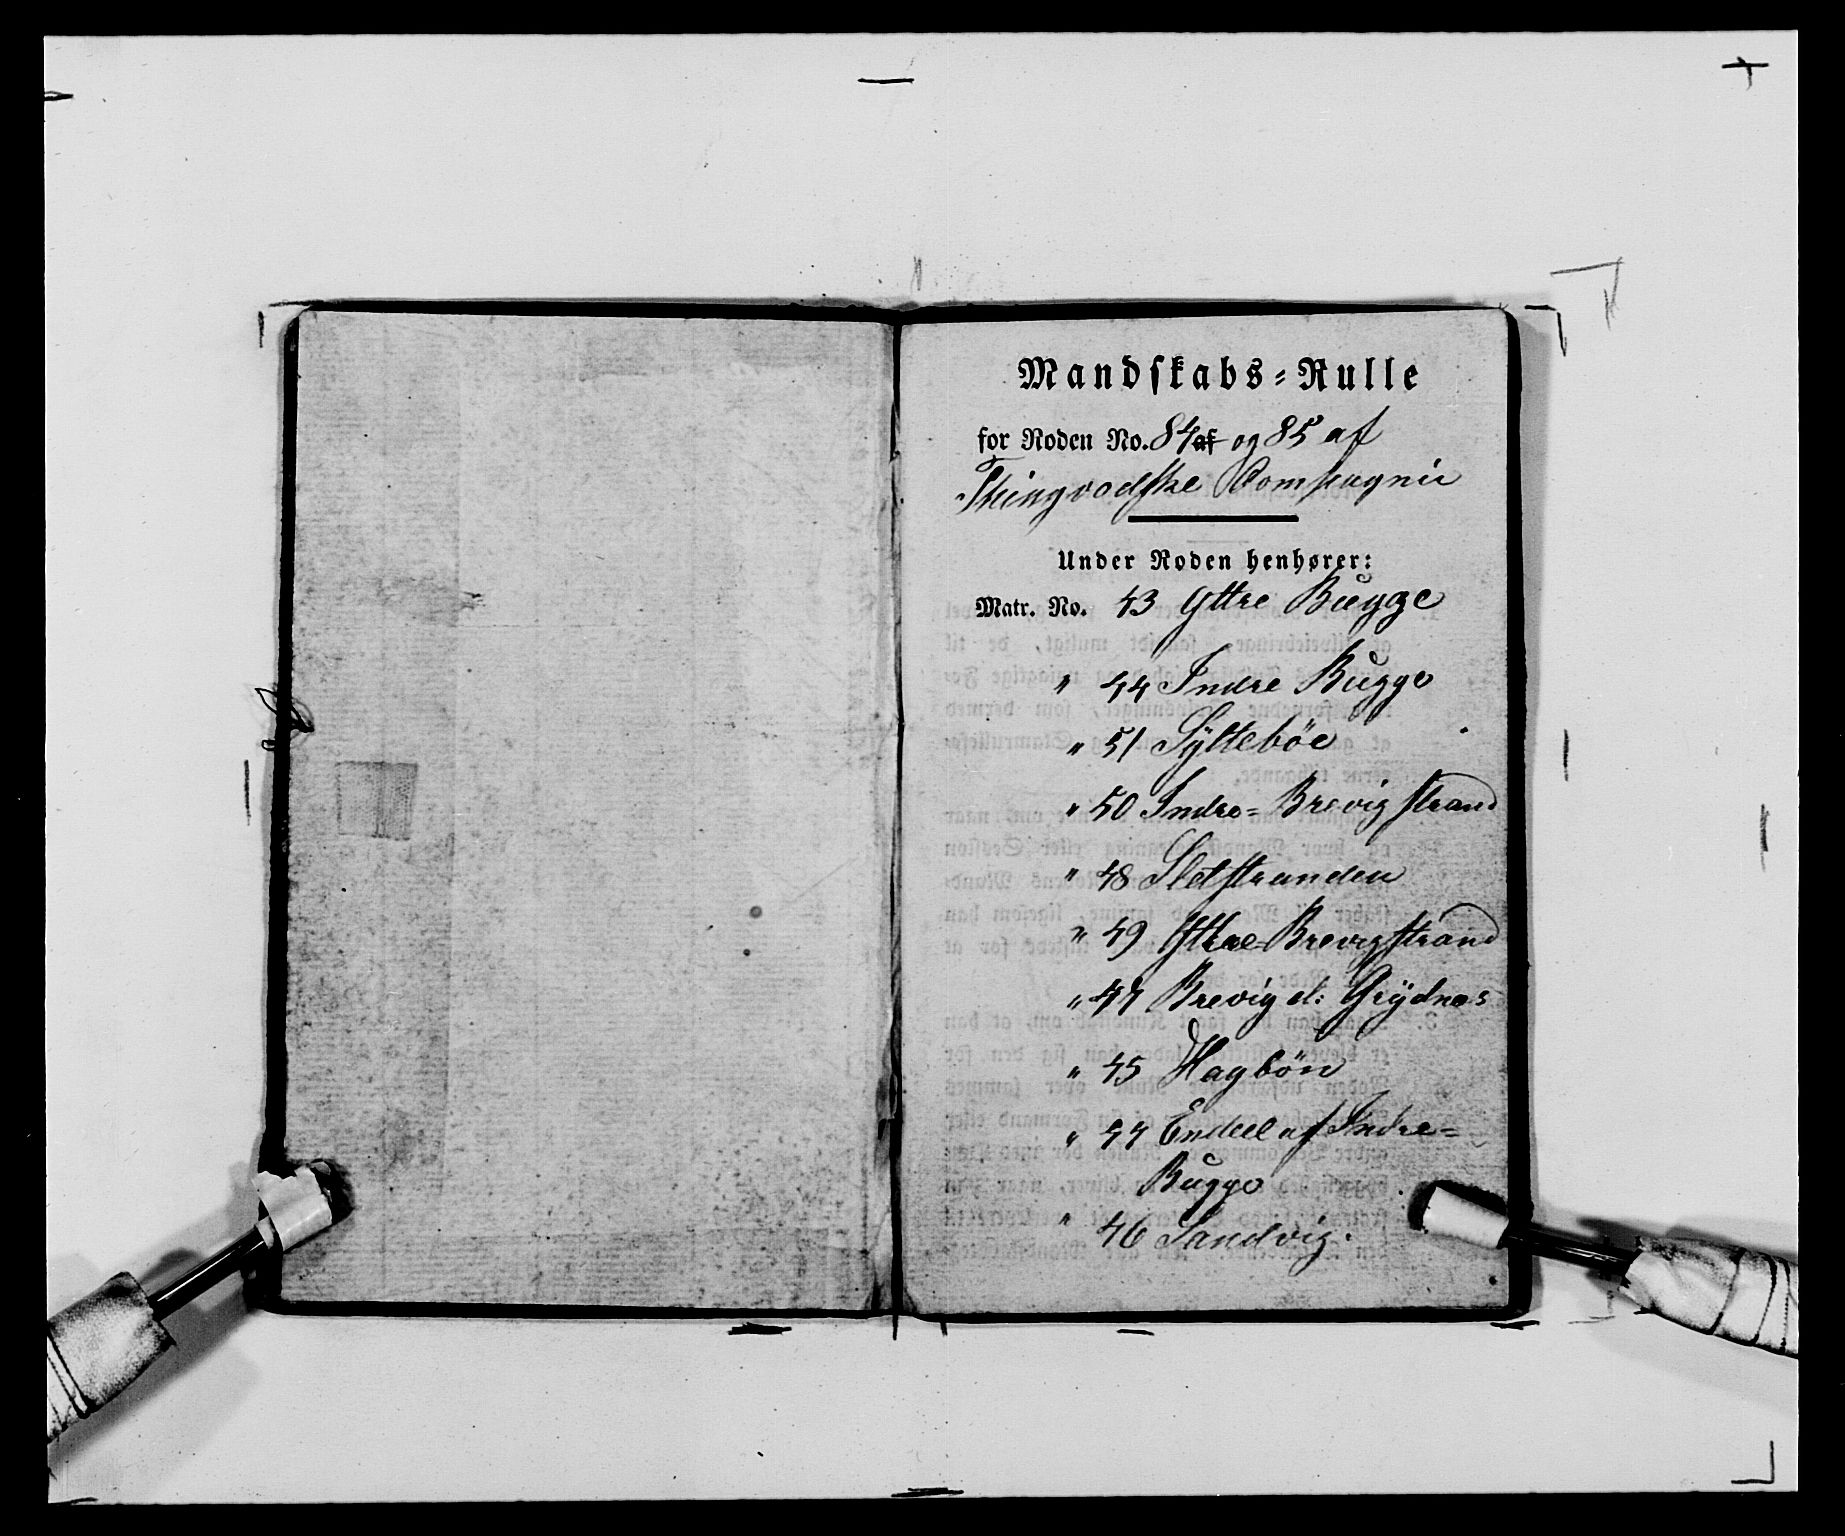 Mandskabs-Rulle
for Roden No. 84 af og 85 af
Thingvodske Compagnie
Under Roden henhører:
Matr. No. 43 Yttre Bugge
" 44 Indre Bugge
" 51 Syltebøe
" 50 Indre-Brevigstrand
" 48 Sletstranden
" 49 Yttre-Brevigstrand
" 47 Brevig el: Grydnes
" 45 Hagbøn
" 44 Endeel af Indre-
Bugge
" 46 Sandvig.